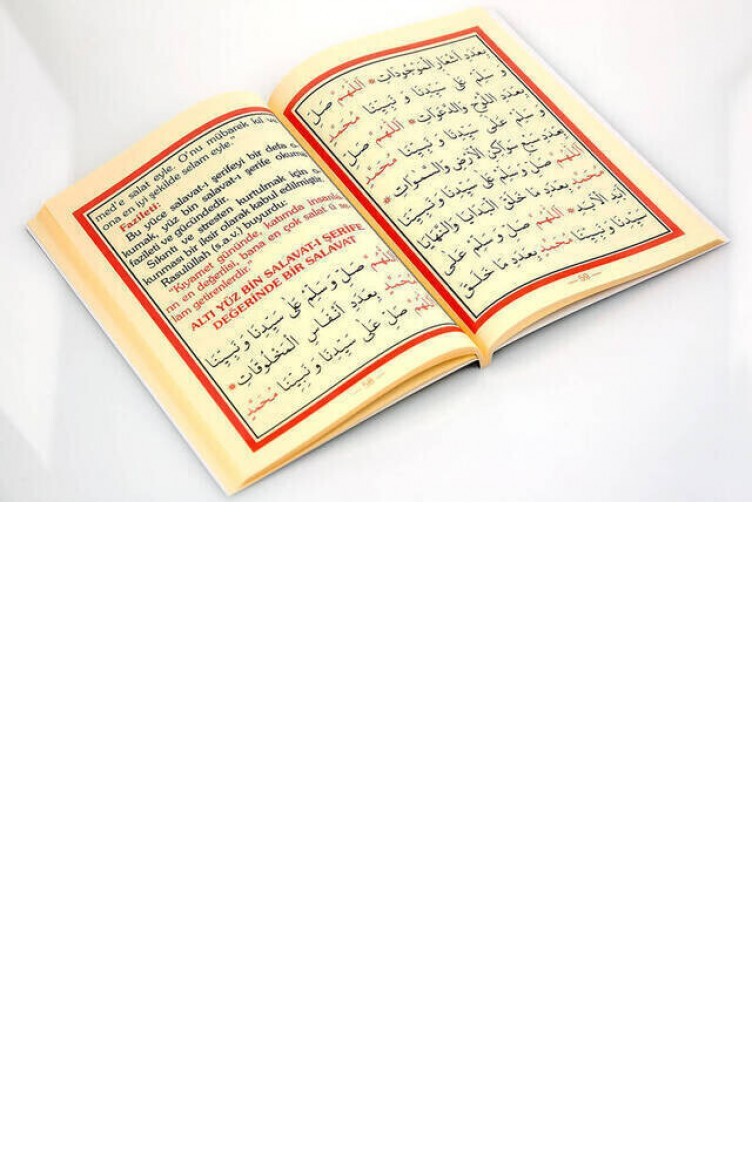 med'e salat eyle. O'nu mübarek kıl ve
ona en iyi şekilde selam eyle."
Fazileti:
Bu yüce salavat-ı şerifeyi bir defa o-
kumak, yüz bin salavat-ı şerife okuma
fazileti ve gücündedir.
Sıkıntı ve stresten kurtulmak için o-
kunması bir iksir olarak kabul edilmiştir.
Rasulüllah (s.a.v.) buyurdu:
"Kıyamet gününde, katımda insanla-
rın en değerlisi, bana en çok salat ü se-
lam getirenlerdir."
ALTI YÜZ BİN SALAVAT-I ŞERİFE
DEĞERİNDE BİR SALAVAT
اَللّٰهُمَّ صَلِّ وَسَلِّمْ عَلٰى سَيِّدِنَا وَ نَبِيِّنَا
مُحَمَّدٍ بِعَدَدِ اَنْفَاسِ الْمَخْلُوقَاتِ *
اَللّٰهُمَّ صَلِّ عَلٰى سَيِّدِنَا وَ نَبِيِّنَا مُحَمَّدٍ
— 58 —
بِعَدَدِ اَشْعَارِ الْمَوْجُودَاتِ * اَللّٰهُمَّ صَلِّ
وَ سَلِّمْ عَلٰى سَيِّدِنَا وَ نَبِيِّنَا مُحَمَّدٍ
بِعَدَدِ وَالدَّعَوَاتِ * اَللّٰهُمَّ صَلِّ
وَ سَلِّمْ عَلٰى سَيِّدِنَا وَ نَبِيِّنَا مُحَمَّدٍ
بِعَدَدِ سَوَاكِنِ الْاَرْضِ وَالسَّمٰوَاتِ *
اَللّٰهُمَّ صَلِّ وَ سَلِّمْ عَلٰى سَيِّدِنَا وَ نَبِيِّنَا
مُحَمَّدٍ بِعَدَدِ مَا خَلَقَ الْبَدَايَا وَالنَّهَايَا
اَبَدَ الْاٰبَدِ * اَللّٰهُمَّ صَلِّ وَ سَلِّمْ عَلٰى
سَيِّدِنَا وَ نَبِيِّنَا مُحَمَّدٍ بِعَدَدِ مَا خَلَقَ
— 59 —